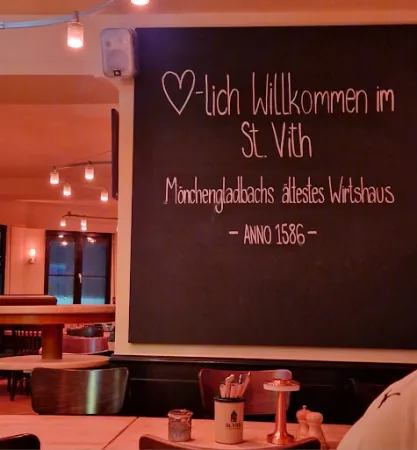 ♡-lich Willkommen im
St. Vith
Mönchengladbachs ältestes Wirtshaus
- ANNO 1586 -
St. Vith